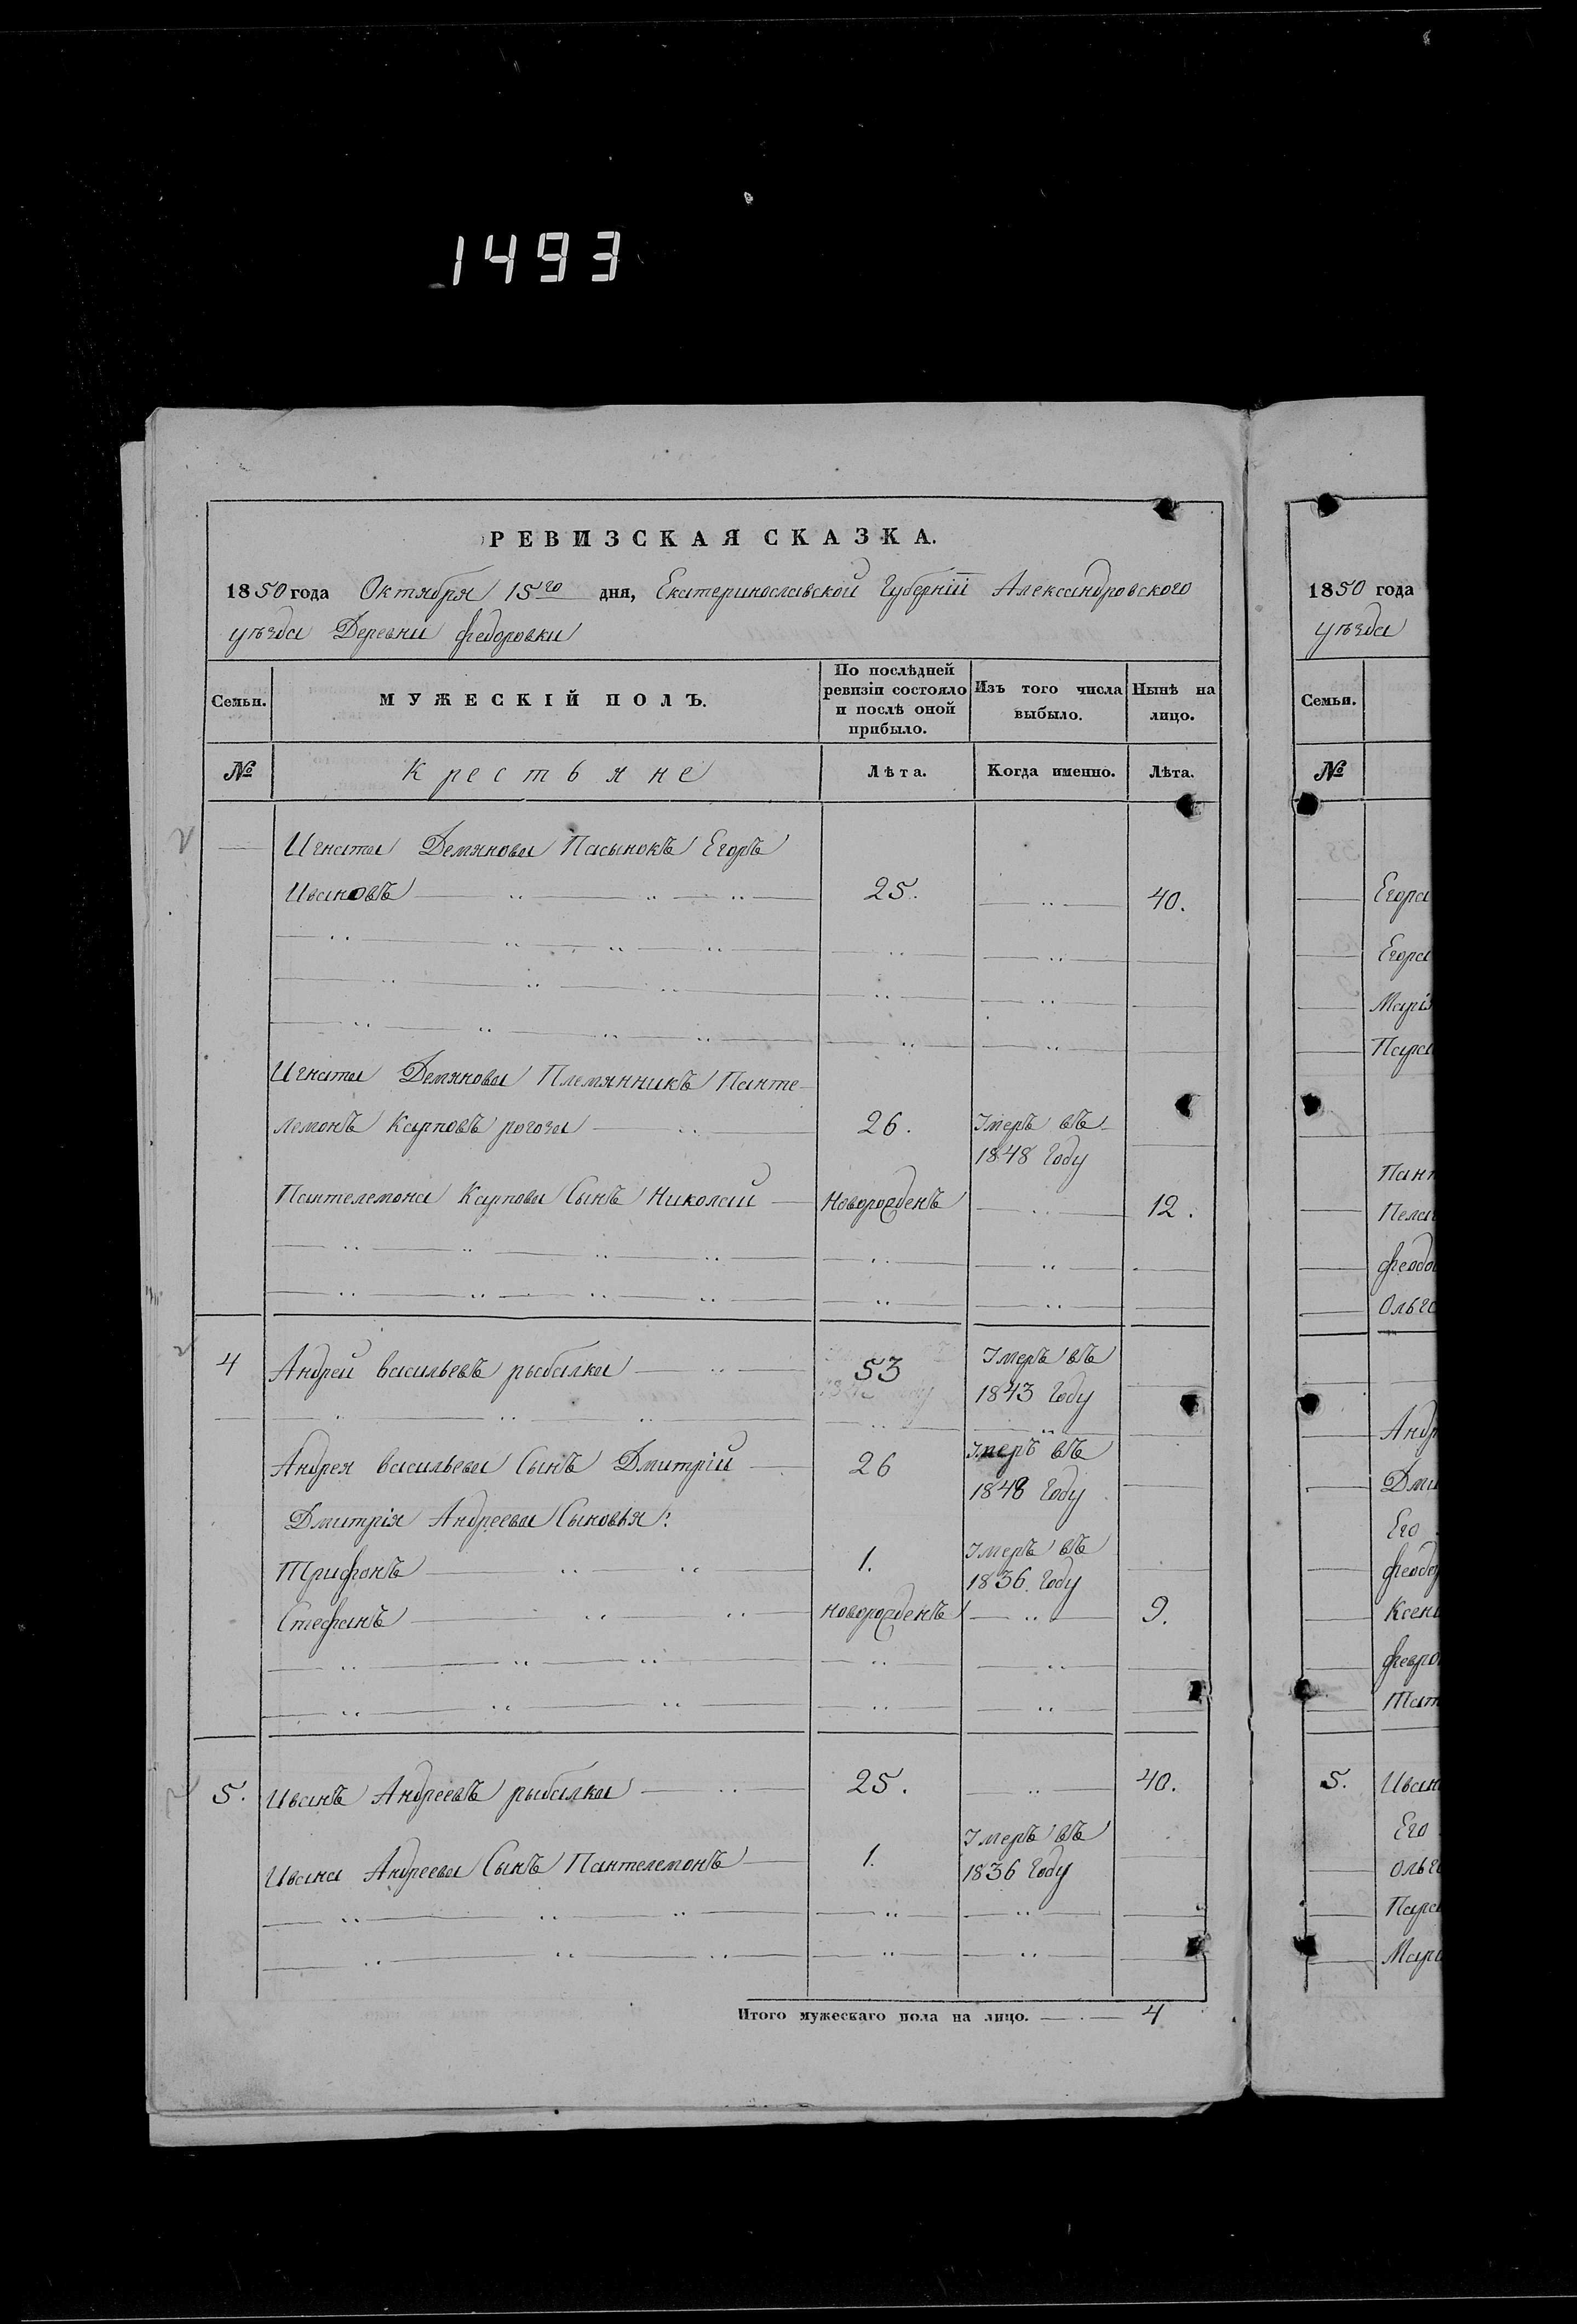 1493
РЕВИЗСКАЯ СКАЗКА.
1850 года Октября 15го дня, Екатеринославской Губерніи Александровского
уѣзда Деревни Федоровки
Семьи. МУЖЕСКІЙ ПОЛЪ. По послѣдней ревизіи состояло и послѣ оной прибыло. Изъ того числа выбыло. Нынѣ на лицо.
№ Крестьяне Лѣта. Когда именно. Лѣта.
Игната Демянова Пасынокъ Егоръ
Ивановъ 25. 40.
Игната Демянова Племянникъ Панте-
лемонъ Карповъ рогоза 26. Умеръ въ
1848 Году
Пантелемона Карпова Сынъ Николай Новорожденъ 12.
4 Андрей васильевъ рыбалка 53 Умеръ въ
1843 Году
Андрея васильева Сынъ Дмитрій 26 Умеръ въ
1848 Году
Дмитрія Андреева Сыновья:
Трифонъ 1. Умеръ въ
1836. Году
Стефанъ новорожденъ 9.
5. Иванъ Андреевъ рыбалка 25. 40.
Ивана Андреева Сынъ Пантелемонъ 1. Умеръ въ
1836 Году
Итого мужескаго пола на лицо. 4
1850 года
уѣзда
Семьи.
№
Егора
Егора
Марія
Пара
Пант
Пела
феодо
Ольг
Андр
Дми
Его
феодо
Ксен
февро
Тат
5. Иван
Его
Ольг
Пара
Мар